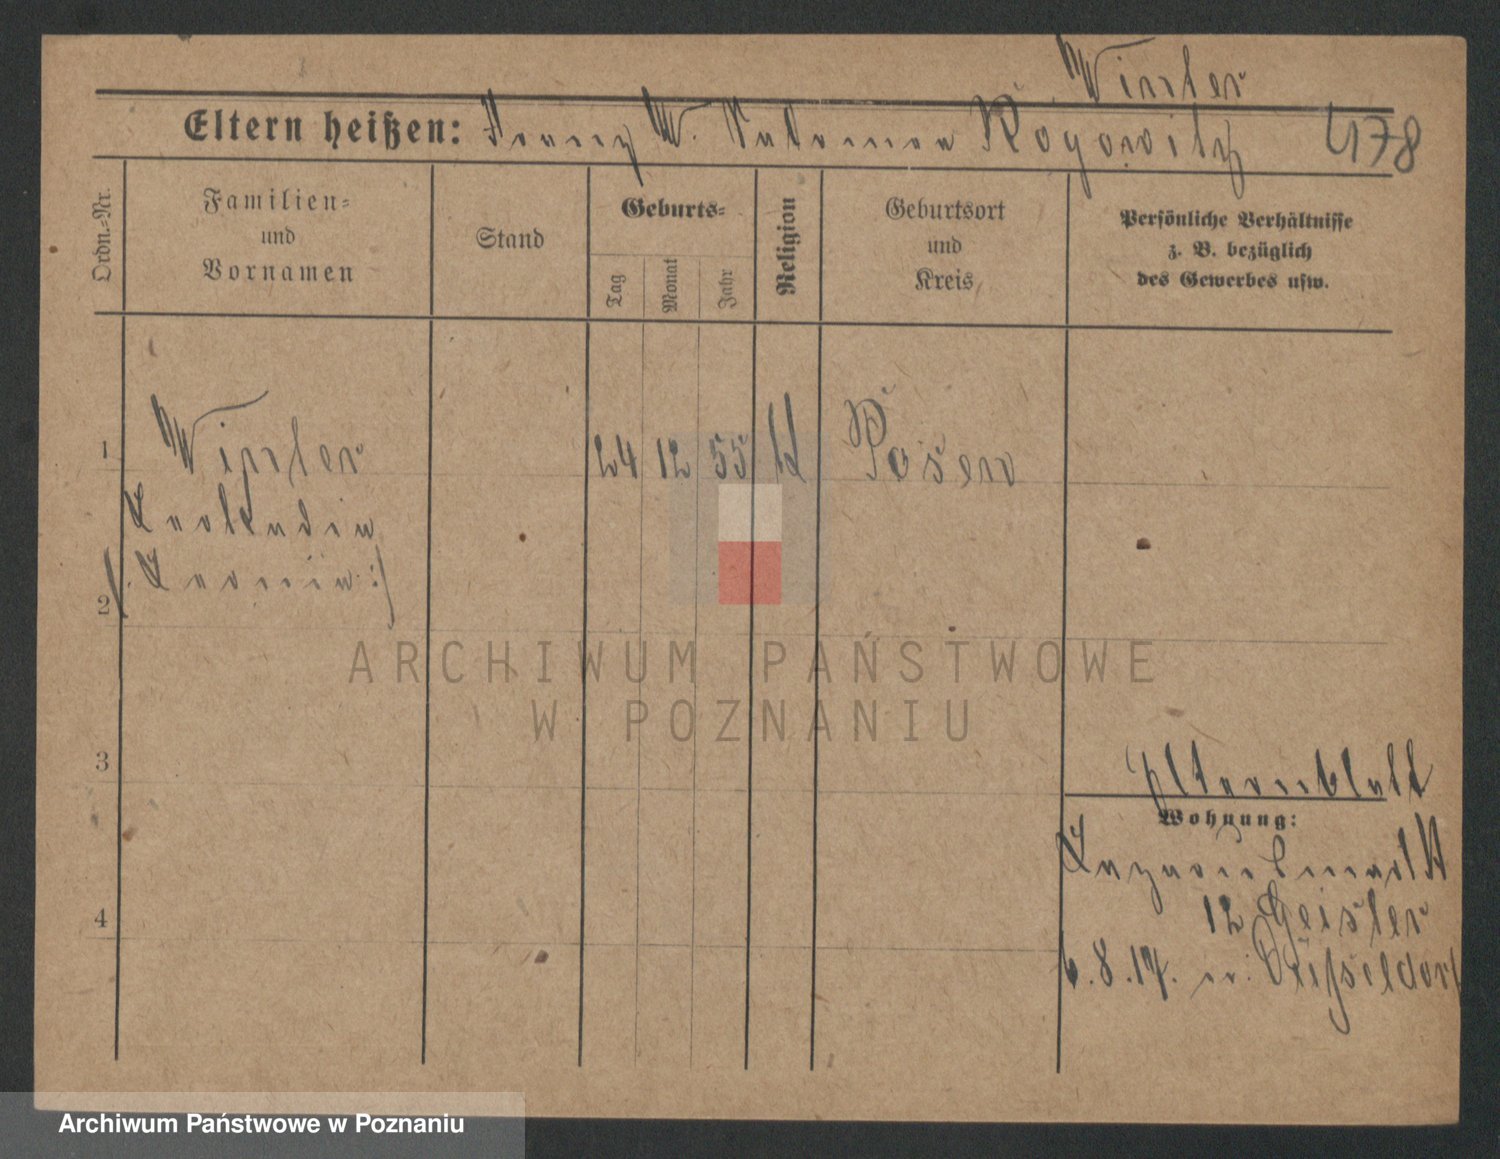 Winter
Eltern heißen: W. Salomea Rogowitz 478
Ordn.-Nr.
Familien-
und
Vornamen
Stand
Geburts-
Tag
Monat
Jahr
Religion
Geburtsort
und
Kreis
Persönliche Verhältnisse
z. B. bezüglich
des Gewerbes usw.
1 Winter 24 12 55 Posen
Leokadia
2
3
Elternblatt
Wohnung:
4
12 Geisler
6.8.17. n. Düsseldorf
ARCHIWUM PAŃSTWOWE
W POZNANIU
Archiwum Państwowe w Poznaniu